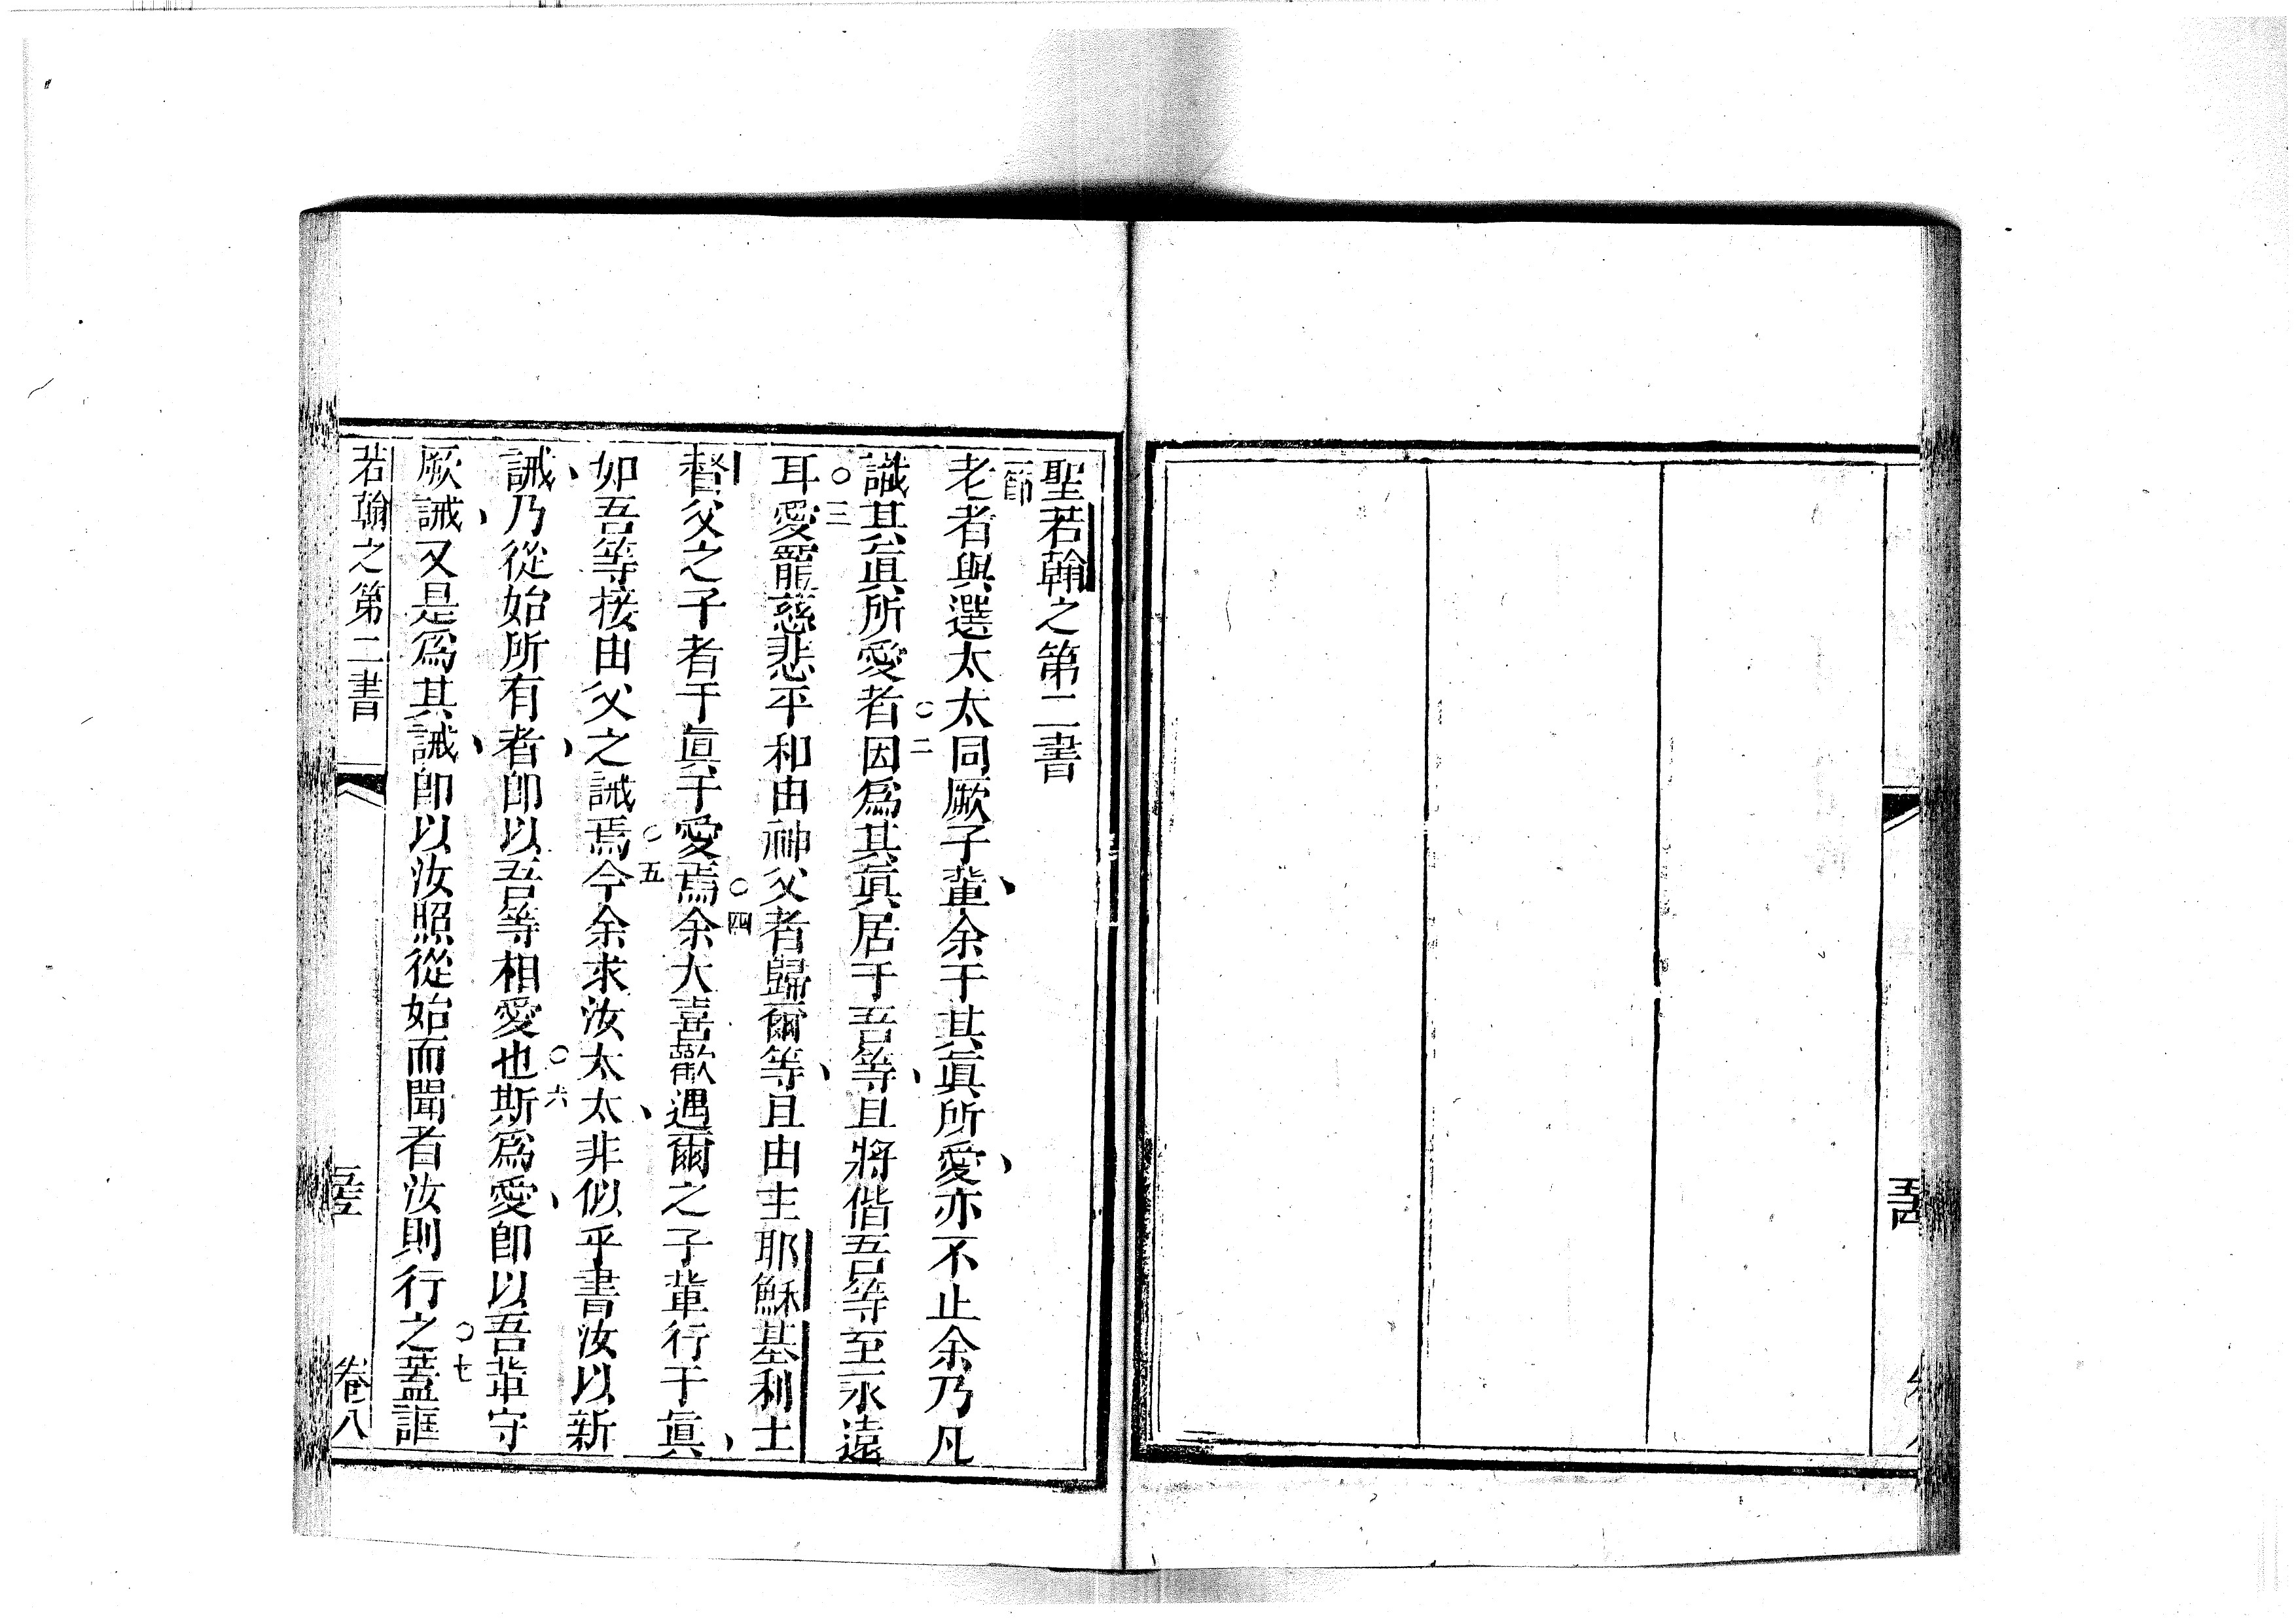 聖若翰之第二書
一節
老者與選太太同厥子輩余于其眞所愛亦不止余乃凡
識其眞所愛者〇二因爲其眞居于吾等且將偕吾等至永遠
耳〇三愛寵慈悲平和由神父者歸爾等且由主耶穌基利士
督父之子者于眞于愛焉〇四余大喜歡遇爾之子輩行于眞
如吾等接由父之誡焉〇五今余求汝太太非似乎書汝以新
誡乃從始所有者即以吾等相愛也〇六斯爲愛即以吾輩守
厥誡又是爲其誡即以汝照從始而聞者汝則行之〇七蓋誆
若翰之第二書
卷八